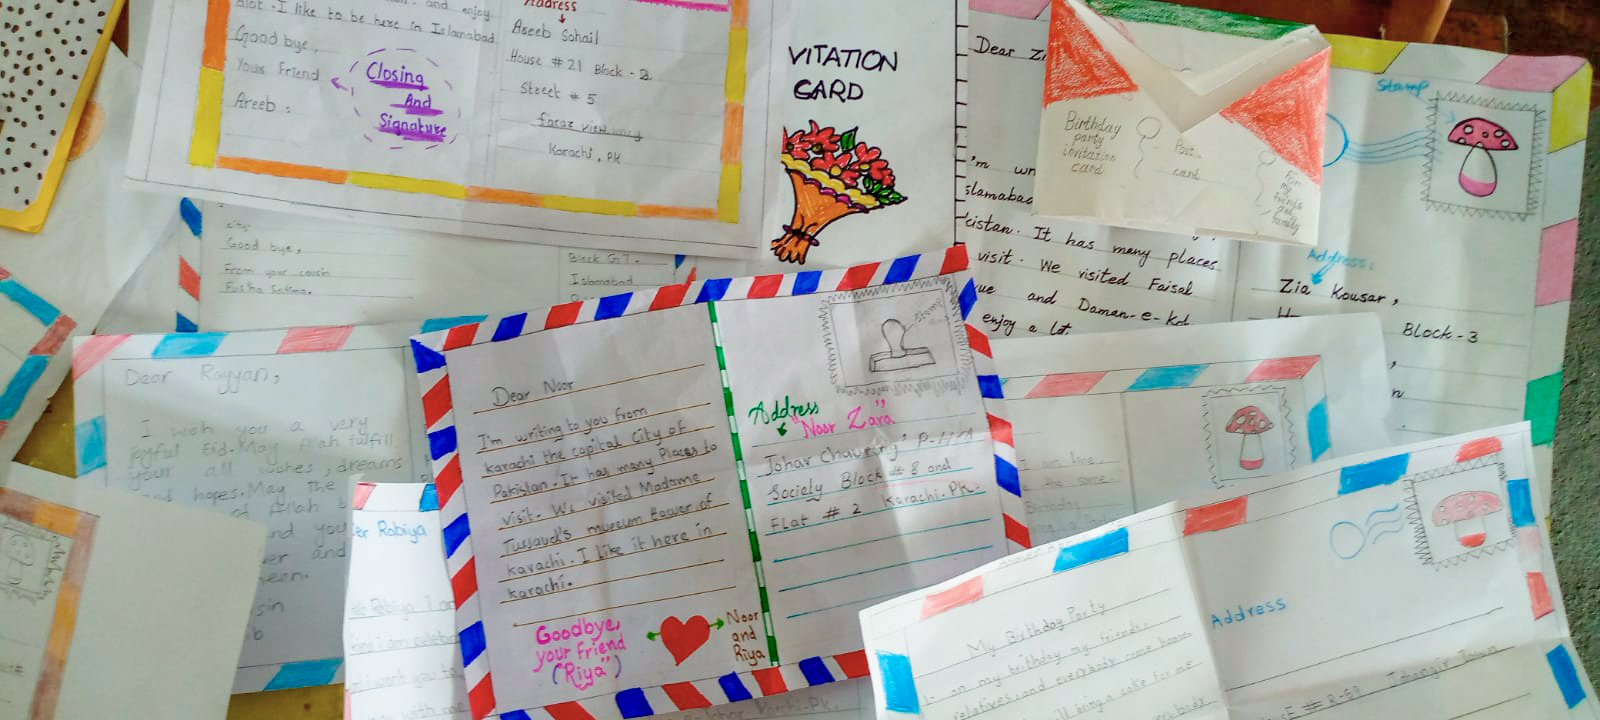 and enjoy
alot. I like to be here in Islamabad
Good bye,
Your Friend
Areeb.
Closing
And
Signature
Address
Areeb Sohail
House # 21 Block - 2
Street # 5
faraz view
Karachi. PK
VITATION
CARD
Dear Zi
'm wr
slamabad
kistan. It has many places
visit. We visited Faisal
ue and Daman-e-Koh
enjoy a lot.
Birthday
party
invitation
card
Post
card
For
my
friends
and
family
Stamp
Address:
Zia Kousar,
Block-3
city.
Good bye,
From your cousin
Fatima.
Block G7.
Islamabad
Dear Rayyan,
I wish you a very
joyful Eid. May Allah fulfill
your all wishes, dreams
and hopes. May the
of Allah
and you
er and
sin
Dear Noor
I'm writing to you from
karachi the capital City of
Pakistan. It has many Places to
visit. We visited Madame
Tussaud's museum tower of
karachi. I like it here in
karachi.
Goodbye,
your friend
("Riya")
Noor
and
Riya
Stamp
Address
"Noor Zara"
Johar Chaurangi P-H-A
Society Block # 8 and
Flat # 2 Karachi. PK.
er Rabiya
Rabiya I am
find i am celebr
want you to
with me
I am fine,
the same.
Birthday
My Birthday Party
on my brithday my friends,
relatives and everybody come home.
bring a cake for me
Address
# R-59 Jahangir Town